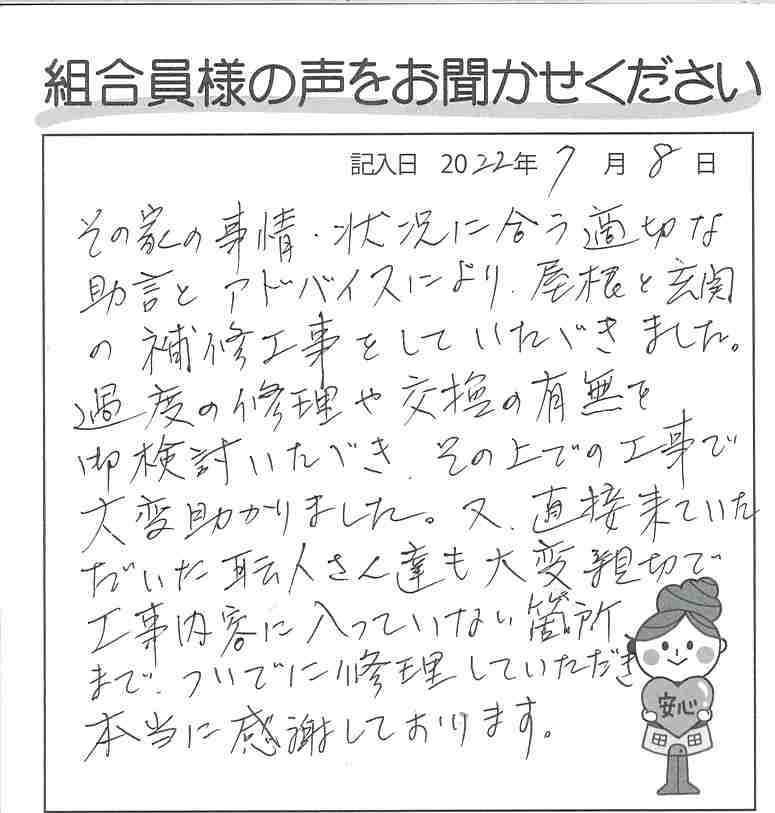 組合員様の声をお聞かせください
記入日 2022年 7月 8日
その家の事情・状況に合う適切な
助言とアドバイスにより、屋根と玄関
の補修工事をしていただきました。
過度の修理や交換の有無を
御検討いただき、その上での工事で
大変助かりました。又、直接来ていた
だいた職人さん達も大変親切で
工事内容に入っていない箇所
まで、ついでに修理していただき
本当に感謝しております。
安心